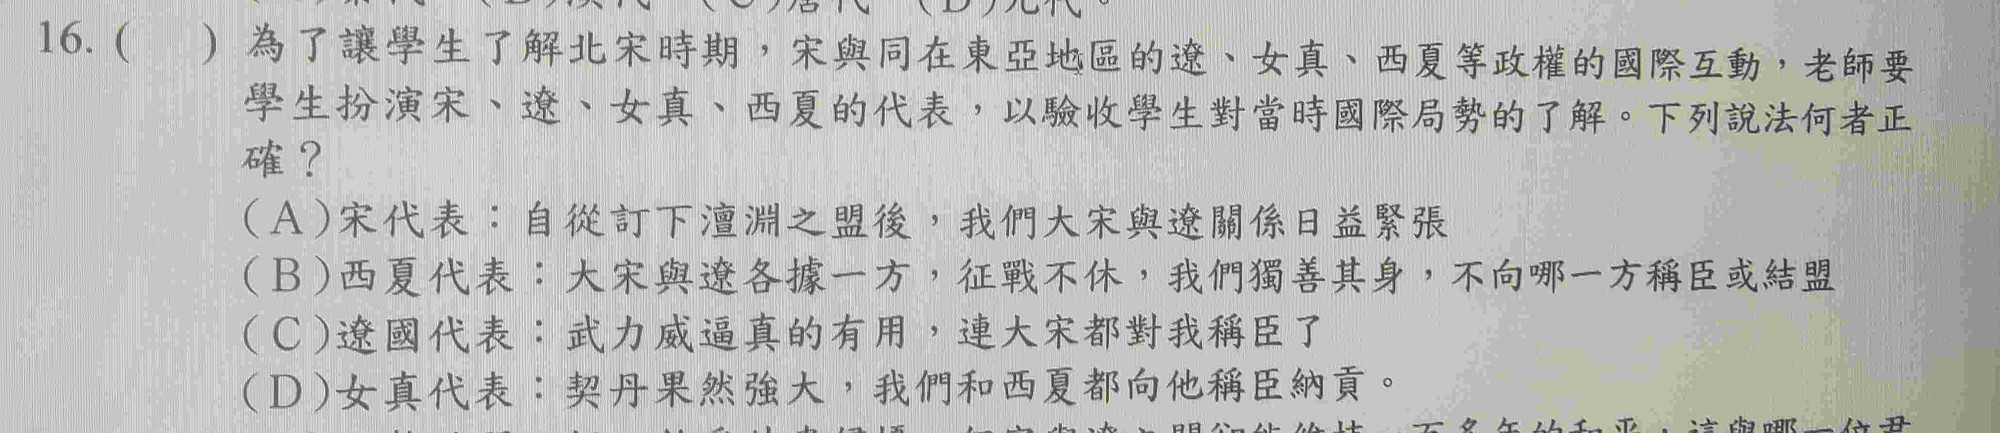 16. (　) 為了讓學生了解北宋時期，宋與同在東亞地區的遼、女真、西夏等政權的國際互動，老師要
學生扮演宋、遼、女真、西夏的代表，以驗收學生對當時國際局勢的了解。下列說法何者正
確？
(A)宋代表：自從訂下澶淵之盟後，我們大宋與遼關係日益緊張
(B)西夏代表：大宋與遼各據一方，征戰不休，我們獨善其身，不向哪一方稱臣或結盟
(C)遼國代表：武力威逼真的有用，連大宋都對我稱臣了
(D)女真代表：契丹果然強大，我們和西夏都向他稱臣納貢。